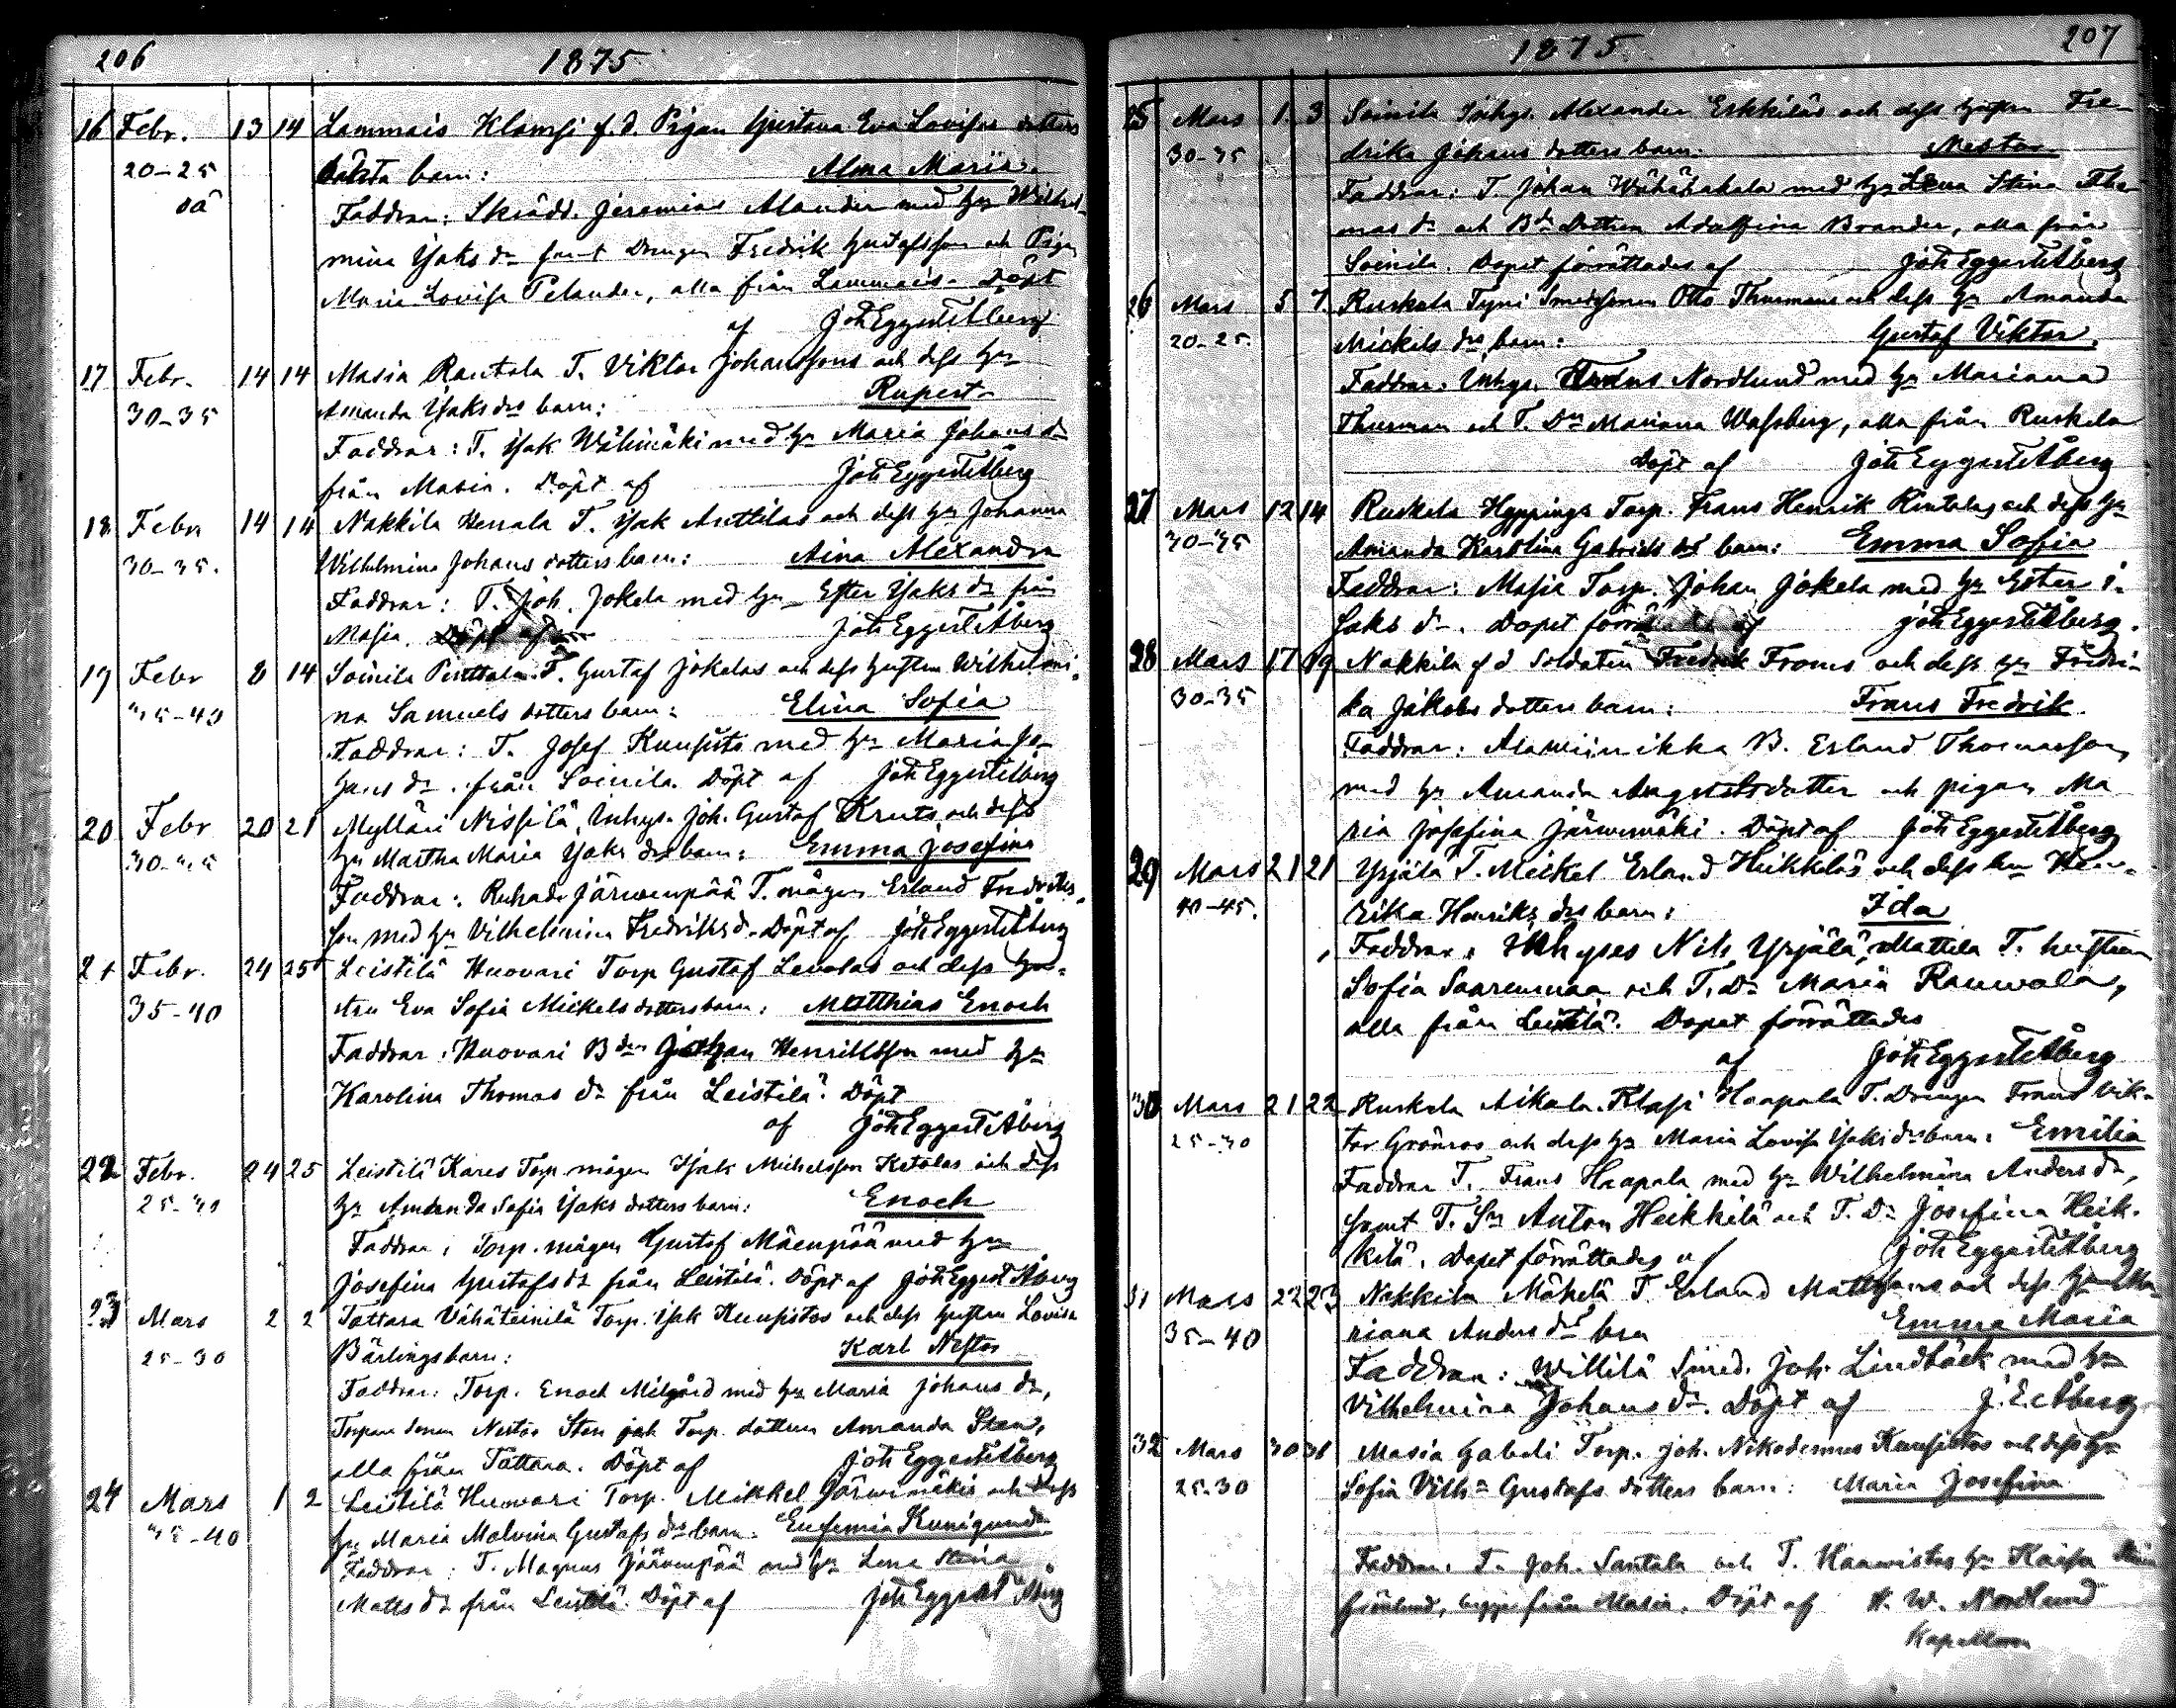 206
1875
16 Febr. 13 14 Lammais Klomsi f.d. Pigan Gustava Eva Lovisas dotters
20-25 oäkta barn: Alma Maria.
oä Faddrar: Skrädd. Jeremias Alander med hu Wilhel-
mina Isaks dr samt Drengen Fredrik Gustafsson och Pigan
Maria Lovisa Pelander, alla från Lammais. Döpt
af Joh Eggert Åberg
17 Febr. 14 14 Masia Rantala T. Viktor Johanssons och dess hu
30-35 Amanda Isaks drs barn: Rupert
Faddrar: T. Isak Wälimäki med hu Maria Johans dr
från Masia. Döpt af Joh Eggert Åberg
18 Febr 14 14 Nakkila Herrala T. Isak Anttilas och dess hu Johanna
30-35. Wilhelmina Johans dotters barn: Aina Alexandra
Faddrar: T. Joh. Jokela med hu Ester Isaks dr från
Masia. Döpt af Joh Eggert Åberg
19 Febr 8 14 Soinila Penttala T. Gustaf Jokelas och dess hustru Wilhelmi-
35-40 na Samuels dotters barn: Elina Sofia
Faddrar: T. Josef Kuusisto med hu Maria Jo-
hans dr. från Soinila. Döpt af Joh Eggert Åberg
20 Febr 20 21 Myllari Nissilä, Inhys. Joh. Gustaf Kruts och dess
30-35 hu Martha Maria Isaks drs barn: Emma Josefina
Faddrar: Ruhade Järwenpää T. mågen Erland Fredriks-
son med hu Vilhelmina Fredriksd. Döpt af Joh Eggert Åberg
21 Febr. 24 25 Leistilä Huovari Torp Gustaf Levolas och dess hu-
35-40 stru Eva Sofia Mickels dotters barn: Matthias Enoch
Faddrar: Huovari Bden Johan Henriksson med hu
Karolina Thomas dr från Leistilä. Döpt
af Joh Eggert Åberg
22 Febr. 24 25 Leistilä Kares Torp. mågen Isak Michelsson Ketolas och dess
25-30 hu Amanda Sofia Isaks dotters barn: Enoch
Faddrar: Torp. mågen Gustaf Mäenpää med hu
Josefina Gustafs dr från Leistilä. Döpt af Joh Eggert Åberg
23 Mars 2 2 Tattara Vähäteinilä Torp. Isak Kuusistos och dess hustru Lovisa
25-30 Bärlings barn: Karl Nestor
Faddrar: Torp. Enoch Milgård med hu Maria Johans dr,
Torpare sonen Nestor Sten och Torp. dottren Amanda Sten,
alla från Tattara. Döpt af Joh Eggert Åberg
24 Mars 1 2 Leistilä Huovari Torp. Mikkel Järwimäkis och dess
35-40 hu Maria Malvina Gustafs drs barn: Eufemia Kunigunda
Faddrar: T. Magnus Järvenpää med hu Lena Stina
Matts dr från Leistilä. Döpt af Joh Eggert Åberg
1875
207
25 Mars 1 3 Soinila Inhys. Alexander Erkkiläs och dess hustru Fre-
30-35 drika Johans dotters barn: Nestor
Faddrar: T. Johan Wähähakala med hu Lena Stina Tho-
mas dr och Bds Dottren Adolfina Brander, alla från
Soinila. Dopet förrättades af Joh Eggert Åberg
26 Mars 5 7 Ruskela Tyni Smedsonen Otto Thurmans och dess hu Amanda
20-25. Mickels drs barn: Gustaf Viktor.
Faddrar: Inhys. Nordlund med hu Mariana
Thurman och T. Dn Mariana Wassberg, alla från Ruskela
Döpt af Joh Eggert Åberg
27 Mars 12 14 Ruskela Hyppings Torp. Frans Henrik Rintalas och dess hu
30-35 Amanda Karolina Gabriels drs barn: Emma Sofia
Faddrar: Masia Torp. Johan Jokela med hu Ester I-
saks dr. Dopet förrättades af Joh Eggert Åberg.
28 Mars 17 19 Nakkila f d Soldaten Fredrik Froms och dess hu Fredri-
30-35 ka Jakobs dotters barn: Frans Fredrik.
Faddrar: Alawiinikka B. Erland Thomasson
med hu Amanda Augustsdotter och pigan Ma
ria Josefina Järwimäki. Döpt af Joh Eggert Åberg
29 Mars 21 21 Yrjälä T. Mickel Erland Heikkiläs och dess hu Hen-
40-45. rika Henriks drs barn: Ida
Faddrar: Inhyses Nils Yrjälä, Mattila T. hustrun
Sofia Saarenmaa och T. Dr Maria Rauwola,
alla från Leistilä. Dopet förrättades
af Joh Eggert Åberg
30 Mars 21 22 Ruskela Aikala Klasi Haapala T. Drengen Frans Vik-
25-30 tor Grönroos och dess hu Maria Lovisa Isaks drs barn: Emilia
Faddrar T. Frans Haapala med hu Wilhelmina Anders dr,
samt T. Sn Anton Heikkilä och T. Dr Josefina Heik-
kilä. Dopet förrättades af Joh Eggert Åberg
31 Mars 22 23 Nakkila Mäkelä T. Erland Mattssons och dess hu Ma-
35-40 riana Anders drs brn Emma Maria
Faddrar: Willilä Smed. Joh. Lindbäck med hu
Vilhelmina Johans dr. Döpt af J. E. Åberg
32 Mars 30 31 Masia Gabeli Torp. Joh. Nikodemus Kuusistos och dess hu
25-30 Sofia Vilhna Gustafs dotters barn: Maria Josefina
Faddrar: T. Joh. Santala och T. Haawistos hu Kaisa
Grönlund, begge från Masia. Döpt af N. W. Nordlund
Kapellan